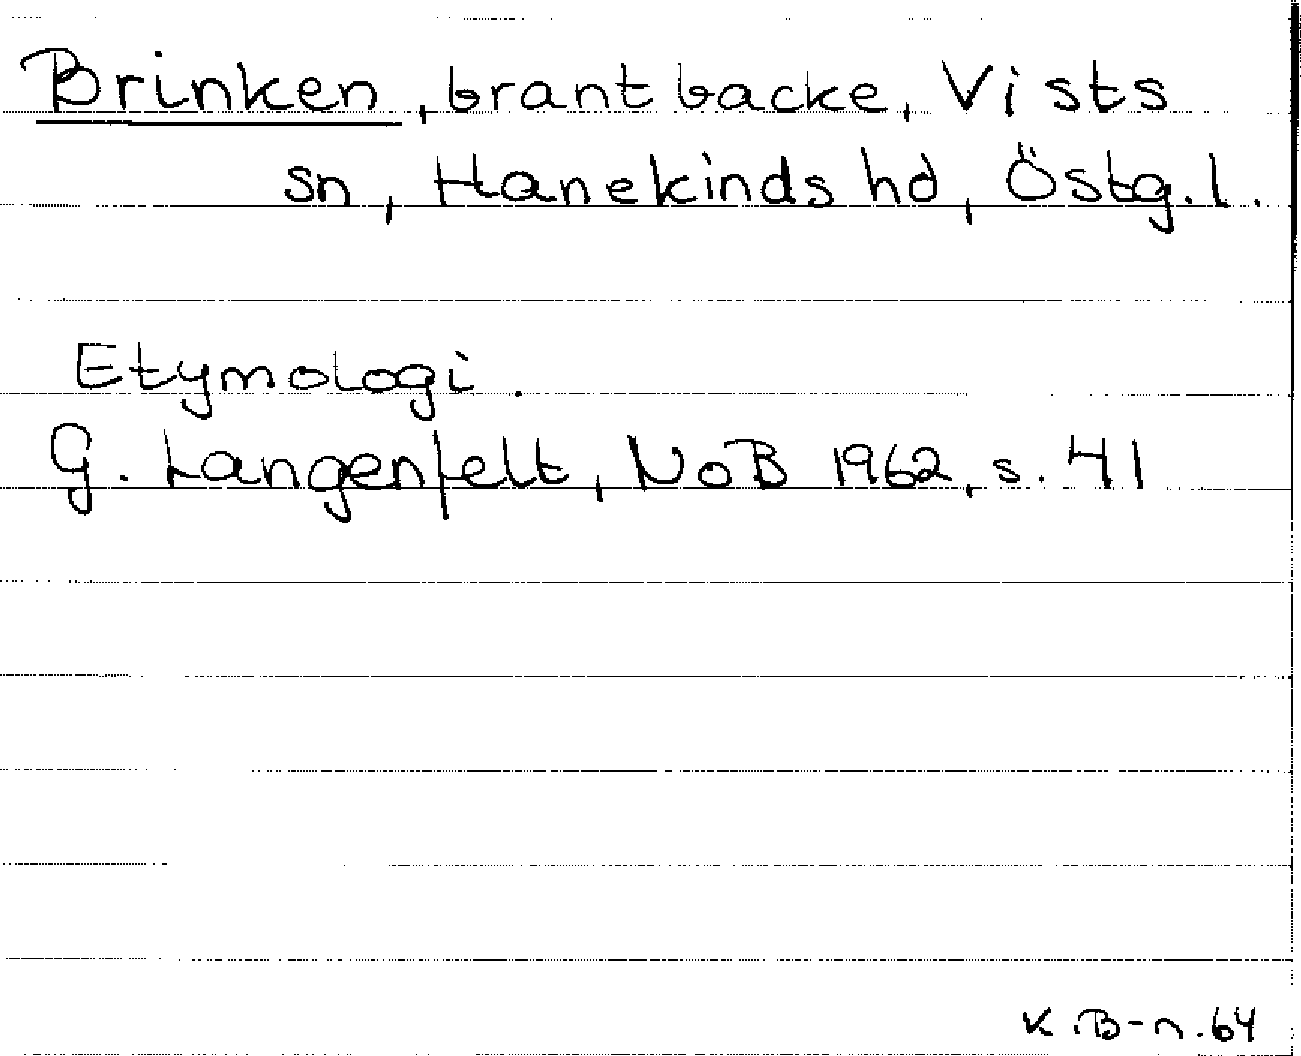 Brinken, brant backe, Vists
sn, Hanekinds hd, Östg. l.
Etymologi.
G. Langenfelt, NoB 1962, s. 41
K. B-n. 64